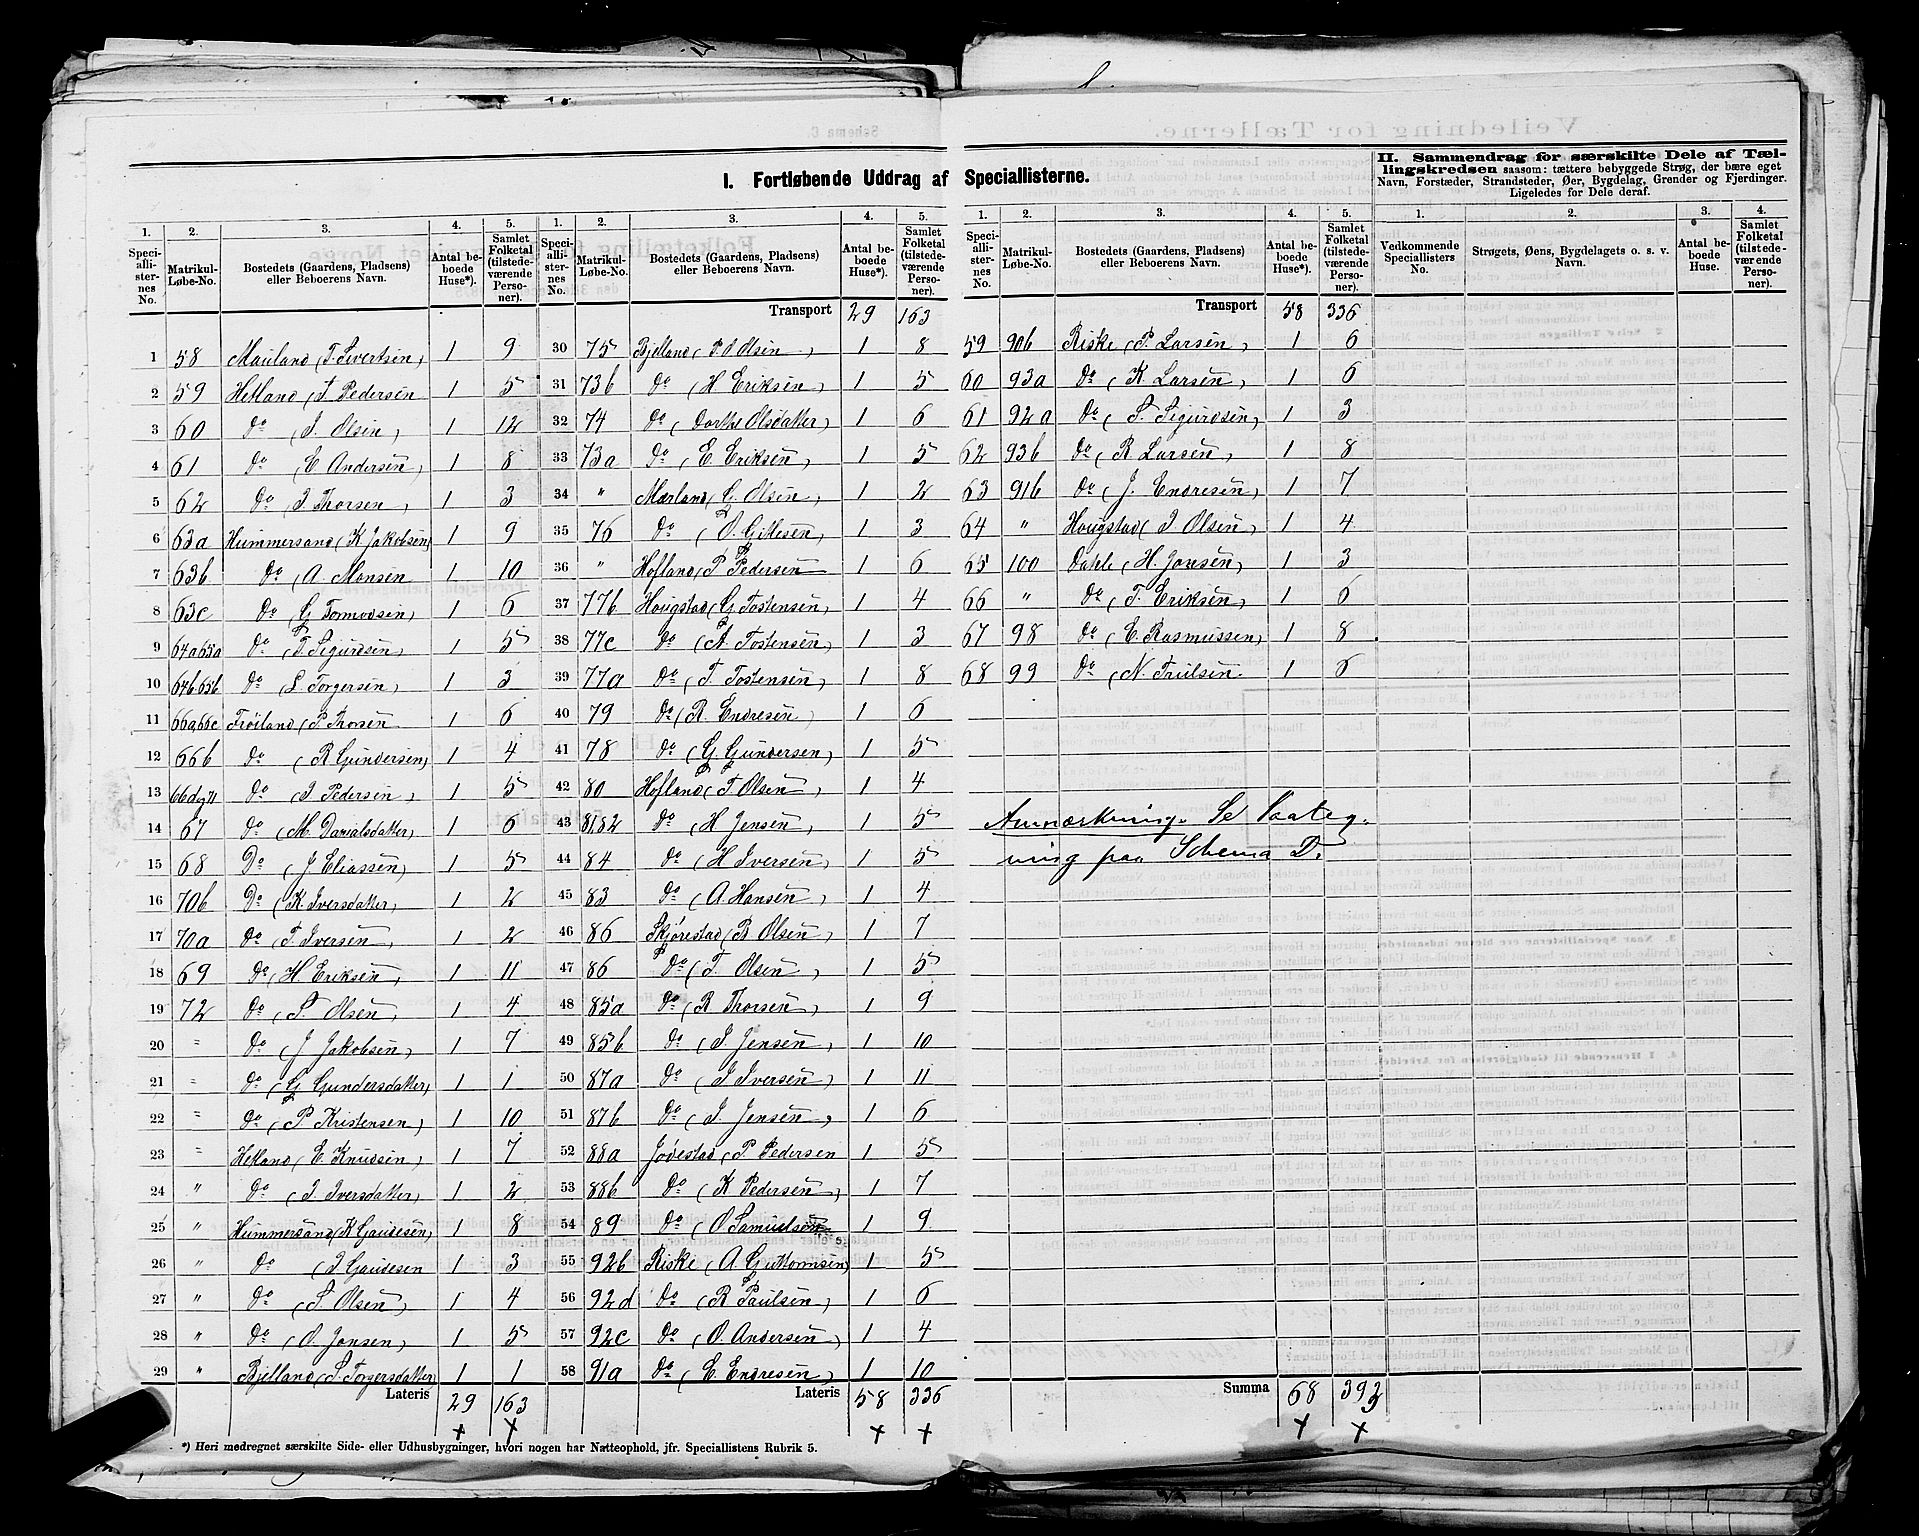 I. Fortløbende Uddrag af Speciallisterne.
II. Sammendrag for særskilte Dele af Tæl-
lingskredsen saasom: tættere bebyggede Strøg, der bære eget
Navn, Forstæder, Strandsteder, Øer, Bygdelag, Grender og Fjerdinger.
Ligeledes for Dele deraf.
1. 2. 3. 4. 5.
Speciallisternes No. Matrikul-Løbe-No. Bostedets (Gaardens, Pladsens) eller Beboerens Navn. Antal beboede Huse*). Samlet Folketal (tilstedeværende Personer).
1 58 Mauland (T. Sivertsen) 1 9
2 59 Hetland (T. Pedersen 1 5
3 60 Do (J. Olsen) 1 12
4 61 Do (E Andersen) 1 8
5 62 Do (J Thorsen) 1 3
6 63a Hummersand (K Jakobsen) 1 9
7 63b Do (A. Monsen 1 10
8 63c Do (G Tormodsen) 1 6
9 64a65a Do (T. Sigurdsen) 1 5
10 64b65b Do (L Torgersen) 1 3
11 66a,66c Frøiland (P. Thorsen 1 6
12 66b Do (R Gundersen) 1 4
13 66d og 71 Do (J Pedersen) 1 5
14 67 Do (M. Danialsdatter) 1 6
15 68 Do (J Eliassen) 1 5
16 70b Do (K. Iversdatter) 1 2
17 70a Do (T. Iversen) 1 2
18 69 Do (H. Eriksen) 1 11
19 72 Do (S. Olsen) 1 4
20 " Do (J Jakobsen) 1 7
21 " Do (G Gundersdatter) 1 1
22 " Do (P Kristensen) 1 10
23 " Hetland (E. Knudsen) 1 7
24 " Do (J. Iversdatter) 1 2
25 " Hummersand (K Gaudesen) 1 8
26 " Do (J Gaudesen 1 3
27 " Do (S. Olsen) 1 4
28 " Do (O. Jonsen) 1 5
29 " Bjelland (S. Torgersdatter) 1 1
Lateris 29 163
*) Heri medregnet særskilte Side- eller Udhusbygninger, hvori nogen har Natteophold, jfr. Speciallistens Rubrik 5.
1. 2. 3. 4. 5.
Speciallisternes No. Matrikul-Løbe-No. Bostedets (Gaardens, Pladsens) eller Beboerens Navn. Antal beboede Huse*). Samlet Folketal (tilstedeværende Personer).
Transport 29 163
30 75 Bjelland (P. O Olsen) 1 8
31 73b Do (H Eriksen) 1 5
32 74 Do (Dorthe Olsdatter) 1 6
33 73a Do (E. Eriksen) 1 5
34 " Mærland (G. Olsen) 1 2
35 76 Do (O. Gittesen) 1 3
36 " Hofland (P Pedersen 1 6
37 77b Hougstad (G Tostensen) 1 4
38 77c Do (A. Tostensen) 1 3
39 77a Do (T Tostensen) 1 8
40 79 Do (R. Endresen) 1 6
41 78 Do (G. Gundersen) 1 5
42 80 Hofland (T Olsen) 1 4
43 81,82 Do (H Jensen) 1 5
44 84 Do (H Iversen) 1 5
45 83 Do (A. Hansen) 1 4
46 86 Skjørestad (R Olsen) 1 7
47 86 Do (T. Olsen) 1 5
48 85a Do (R Thorsen) 1 9
49 85b Do (J Jensen) 1 10
50 87a Do (J Iversen) 1 11
51 87b Do (J. Jensen) 1 6
52 88a Jødestad (P Pedersen 1 5
53 88b Do (K Pedersen) 1 7
54 89 Do (O Samuelsen 1 9
55 92b Riske (A. Guttormsen) 1 5
56 92d Do (R Paulsen) 1 6
57 92c Do (O. Andersen) 1 4
58 91a Do (E. Endresen) 1 10
Lateris 58 336
1. 2. 3. 4. 5.
Speciallisternes No. Matrikul-Løbe-No. Bostedets (Gaardens, Pladsens) eller Beboerens Navn. Antal beboede Huse*). Samlet Folketal (tilstedeværende Personer).
Transport 58 336
59 90b Riske (P. Larsen) 1 6
60 93a Do (K Larsen) 1 6
61 92a Do (S. Sigurdsen) 1 3
62 93b Do (R Larsen) 1 8
63 91b Do (J. Endresen) 1 7
64 " Hougstad (J Olsen) 1 4
65 100 Dahle (H. Jonsen) 1 3
66 " Do (T. Eriksen) 1 6
67 98 Do (E. Rasmussen) 1 8
68 99 Do (N. Trulsen 1 6
Anmærkning. Se Paateg-
ning paa Schema D.
Summa 68 393
1. 2. 3. 4.
Vedkommende Speciallisters No. Strøgets, Øens, Bygdelagets o. s. v. Navn. Antal beboede Huse. Samlet Folketal (tilstedeværende Personer).